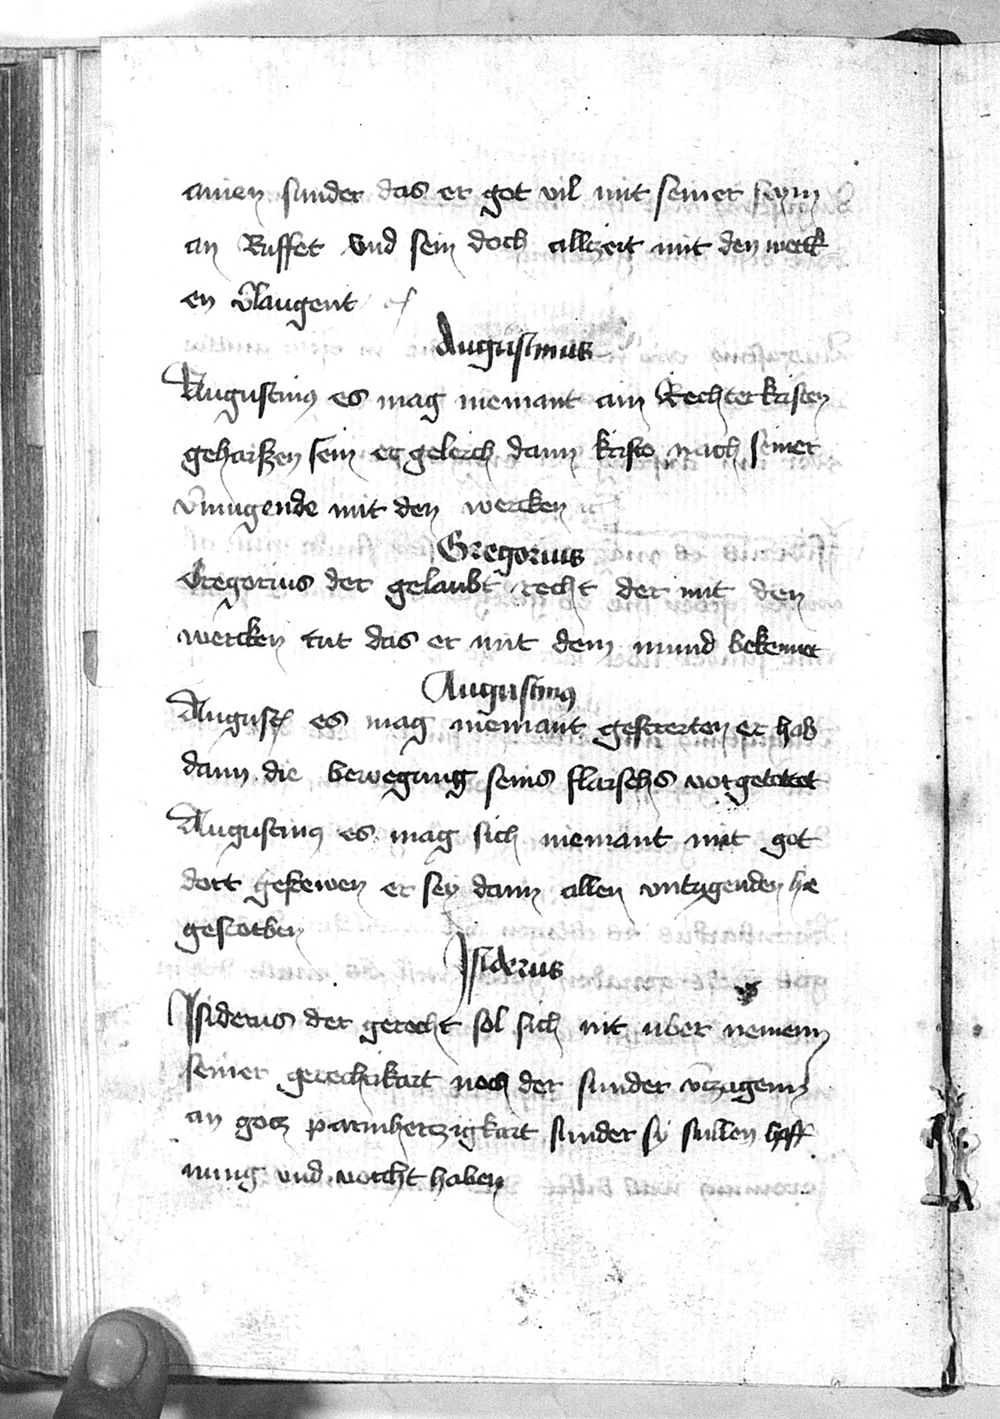 ainen sunder das er got vil mit seiner stym
an Ruffet vnd sein doch allczeit mit den werck
en v̄laugent
Augustinus
Augustinus es mag niemant ain Rechter kristen
gehaissen sein er geleich dann kristo nach seiner
v̄mugende mit den wercken
Gregorius
Gregorius der gelaubt recht der mit den
wercken tut das er mit dem mund bekennet
Augustinus
August es mag niemant gestreiten er hab
dann die bewegung seins flaischs vor getottet
Augustinus es mag sich niemant mit got
dort gefrewen er sey dann allen vntugenden hie
gestorben
Isiderus
Isiderus der gerecht sol sich nit vber nemenn
seiner gerechtikait noch der sunder v̄zagenn
an gotz parmhertzigkait sunder sy sullen hoff
nung vnd vorcht haben